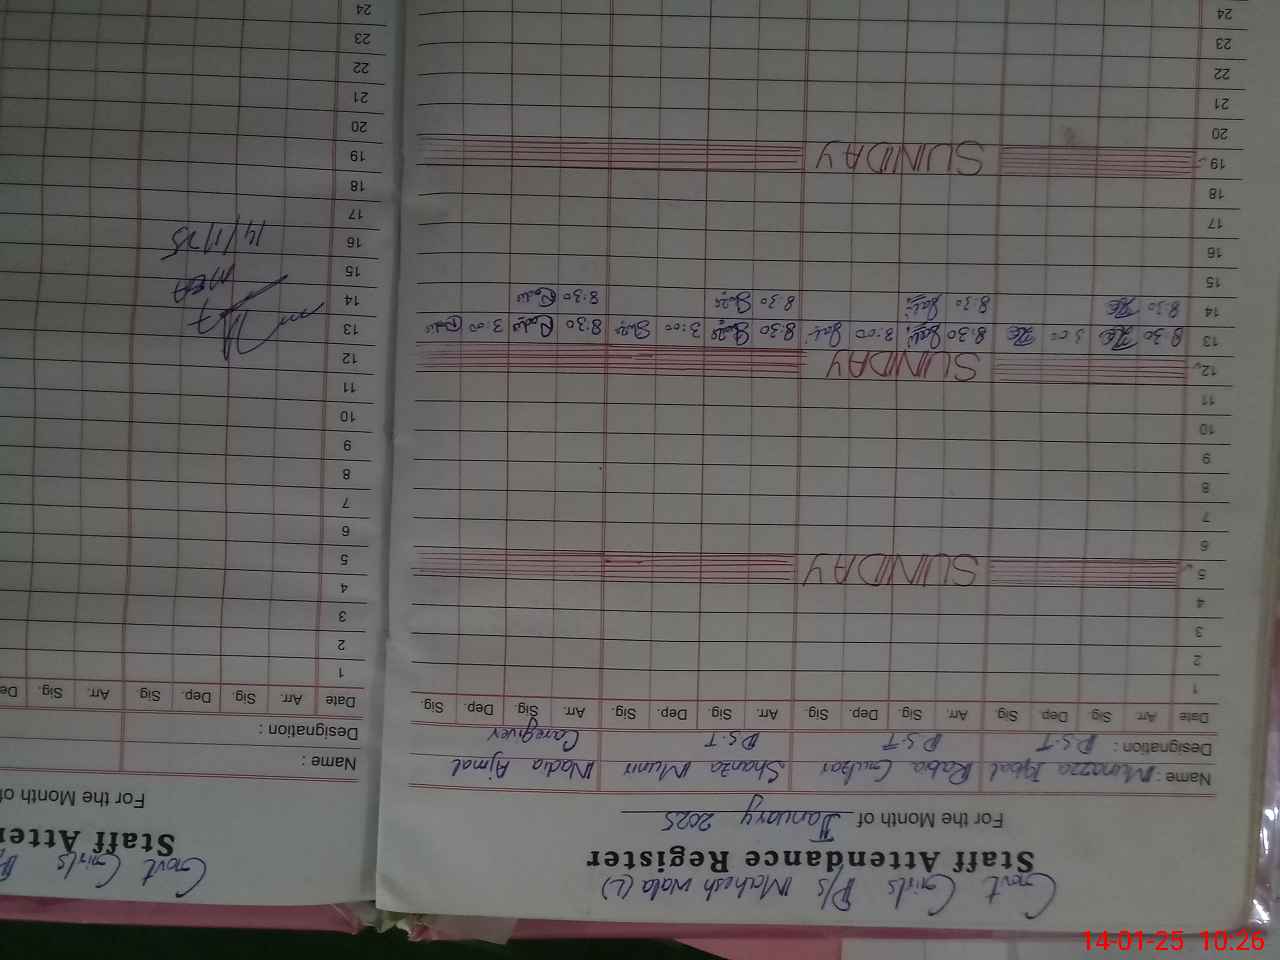 Govt Girls P/s Mahesh wala (L)
Staff Attendance Register
For the Month of January 2025
Name : Munazza Iqbal Rabia Gulzar Shanza Munir Nadia Ajmal
Designation : P.S.T P.S.T P.S.T Caregiver
Date Arr. Sig. Dep. Sig. Arr. Sig. Dep. Sig. Arr. Sig. Dep. Sig. Arr. Sig. Dep. Sig.
1
2
3
4
5 SUNDAY
6
7
8
9
10
11
12 SUNDAY
13 8:30 3:00 8:30 3:00 8:30 3:00 8:30 3:00
14 8:30 8:30 8:30 8:30
15
16
17
18
19 SUNDAY
20
21
22
23
24
Govt Girls
Staff Atten
For the Month of
Name :
Designation :
Date Arr. Sig. Dep. Sig. Arr. Sig. De
1
2
3
4
5
6
7
8
9
10
11
12
13
14
15
16
17
18
19
20
21
22
23
24
MEA
14/1/25
14-01-25 10:26